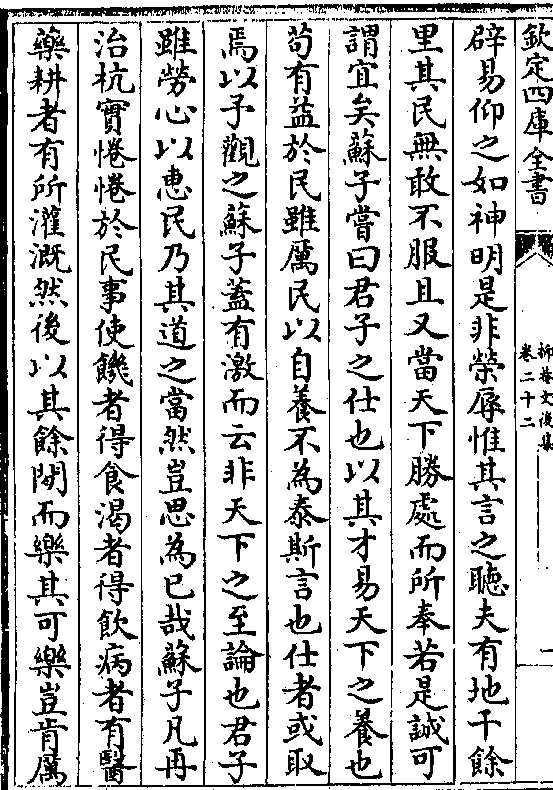 欽定四庫全書
卷二十二
辟易仰之如神明是非榮辱惟其言之聽夫有地千餘
里其民無敢不服且又當天下勝處而所奉若是誠可
謂宜矣蘇子嘗曰君子之仕也以其才易天下之養也
苟有益於民雖厲民以自養不為泰斯言也仕者或取
焉以子觀之蘇子蓋有激而云非天下之至論也君子
雖勞心以惠民乃其道之當然豈思為已哉蘇子凡再
治杭實惓惓於民事使饑者得食渴者得飲病者有醫
藥耕者有所灌溉然後以其餘閒而樂其可樂豈肯厲